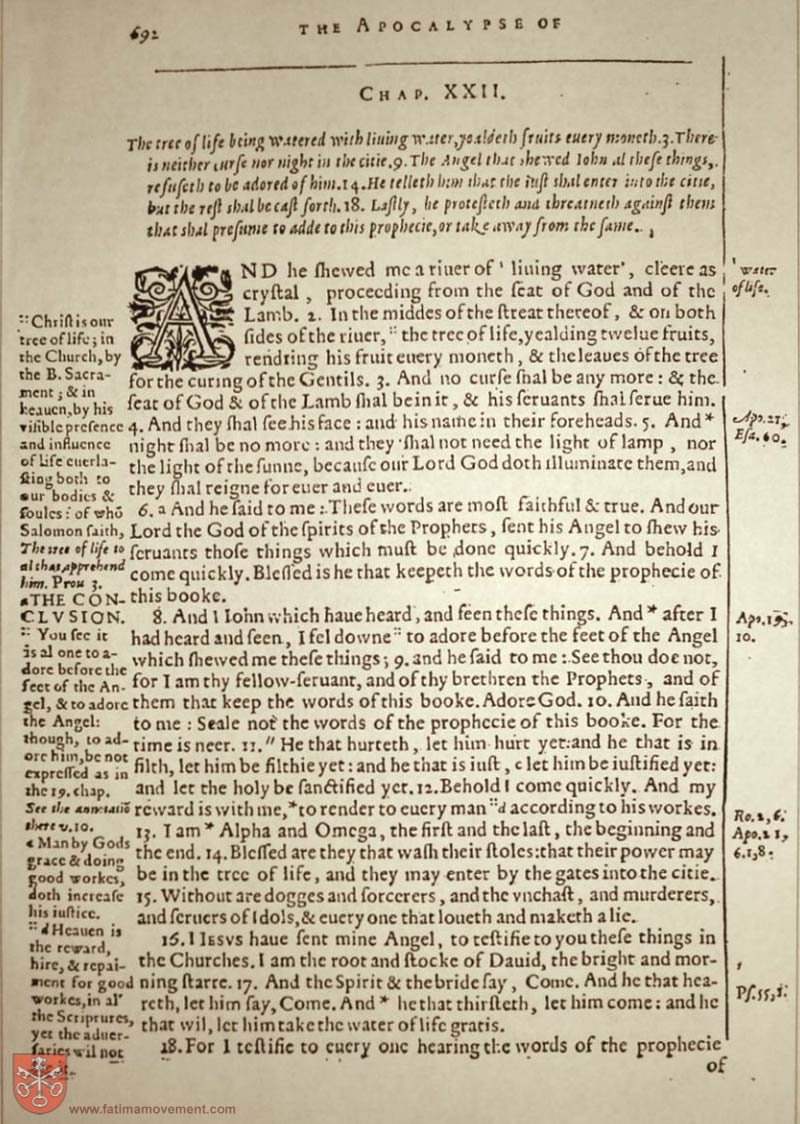 692
THE APOCALYPSE OF
CHAP. XXII.
The tree of life being watered with liuing water, yealdeth fruits euery moneth. 3. There
is neither curse nor night in the citie. 9. The Angel that shewed Iohn al these things,
refuseth to be adored of him. 14. He telleth him that the iust shal enter into the citie,
but the rest shal be cast forth. 18. Lastly, he protesteth and threatneth against them
that shal presume to adde to this prophecie, or take away from the same.
AND he shewed me a riuer of ' liuing water', cleere as
crystal, proceeding from the seat of God and of the
Lamb. 2. In the middes of the streat thereof, & on both
sides of the riuer, :: the tree of life, yealding twelue fruits,
rendring his fruit euery moneth, & the leaues of the tree
for the curing of the Gentils. 3. And no curse shal be any more: & the
seat of God & of the Lamb shal be in it, & his seruants shal serue him.
4. And they shal see his face: and his name in their foreheads. 5. And *
night shal be no more: and they shal not need the light of lamp, nor
the light of the sunne, because our Lord God doth illuminate them, and
they shal reigne for euer and euer.
6. a And he said to me: These words are most faithful & true. And our
Lord the God of the spirits of the Prophets, sent his Angel to shew his
seruants those things which must be done quickly. 7. And behold I
come quickly. Blessed is he that keepeth the words of the prophecie of
this booke.
8. And I Iohn which haue heard, and seen these things. And * after I
had heard and seen, I fel downe :: to adore before the feet of the Angel
which shewed me these things; 9. and he said to me: See thou doe not,
for I am thy fellow-seruant, and of thy brethren the Prophets, and of
them that keep the words of this booke. Adore God. 10. And he saith
to me: Seale not the words of the prophecie of this booke. For the
time is neer. 11. " He that hurteth, let him hurt yet: and he that is in
filth, let him be filthie yet: and he that is iust, c let him be iustified yet:
and let the holy be sanctified yet. 12. Behold I come quickly. And my
reward is with me, * to render to euery man :: d according to his workes.
13. I am * Alpha and Omega, the first and the last, the beginning and
the end. 14. Blessed are they that wash their stoles: that their power may
be in the tree of life, and they may enter by the gates into the citie.
15. Without are dogges and sorcerers, and the vnchast, and murderers,
and seruers of Idols, & euery one that loueth and maketh a lie.
16. I IESVS haue sent mine Angel, to testifie to you these things in
the Churches. I am the root and stocke of Dauid, the bright and mor-
ning starre. 17. And the Spirit & the bride say, Come. And he that hea-
reth, let him say, Come. And * he that thirsteth, let him come: and he
that wil, let him take the water of life gratis.
18. For I testifie to euery one hearing the words of the prophecie
of
:: Christ is our
tree of life; in
the Church, by
the B. Sacra-
ment; & in
heauen, by his
visible presence
and influence
of life euerla-
sting both to
our bodies &
soules: of whō
Salomon saith,
The tree of life to
al that apprehend
him. Prou 3.
a THE CON-
CLVSION.
:: You see it
is al one to a-
dore before the
feet of the An-
gel, & to adore
the Angel:
though, to ad-
ore him, be not
expressed as in
the 19. chap.
See the annotatiō
there v. 10.
c Man by Gods
grace & doing
good workes,
doth increase
his iustice.
:: d Heauen is
the reward,
hire, & repai-
ment for good
workes, in al
the Scriptures,
yet the aduer-
saries wil not
' water
of life.
Apo. 21,
Esa. 60.
Apo. 19,
10.
Ro. 2, 6.
Apo. 21,
6. 1, 8.
Ps. 55, 1.
www.fatimamovement.com